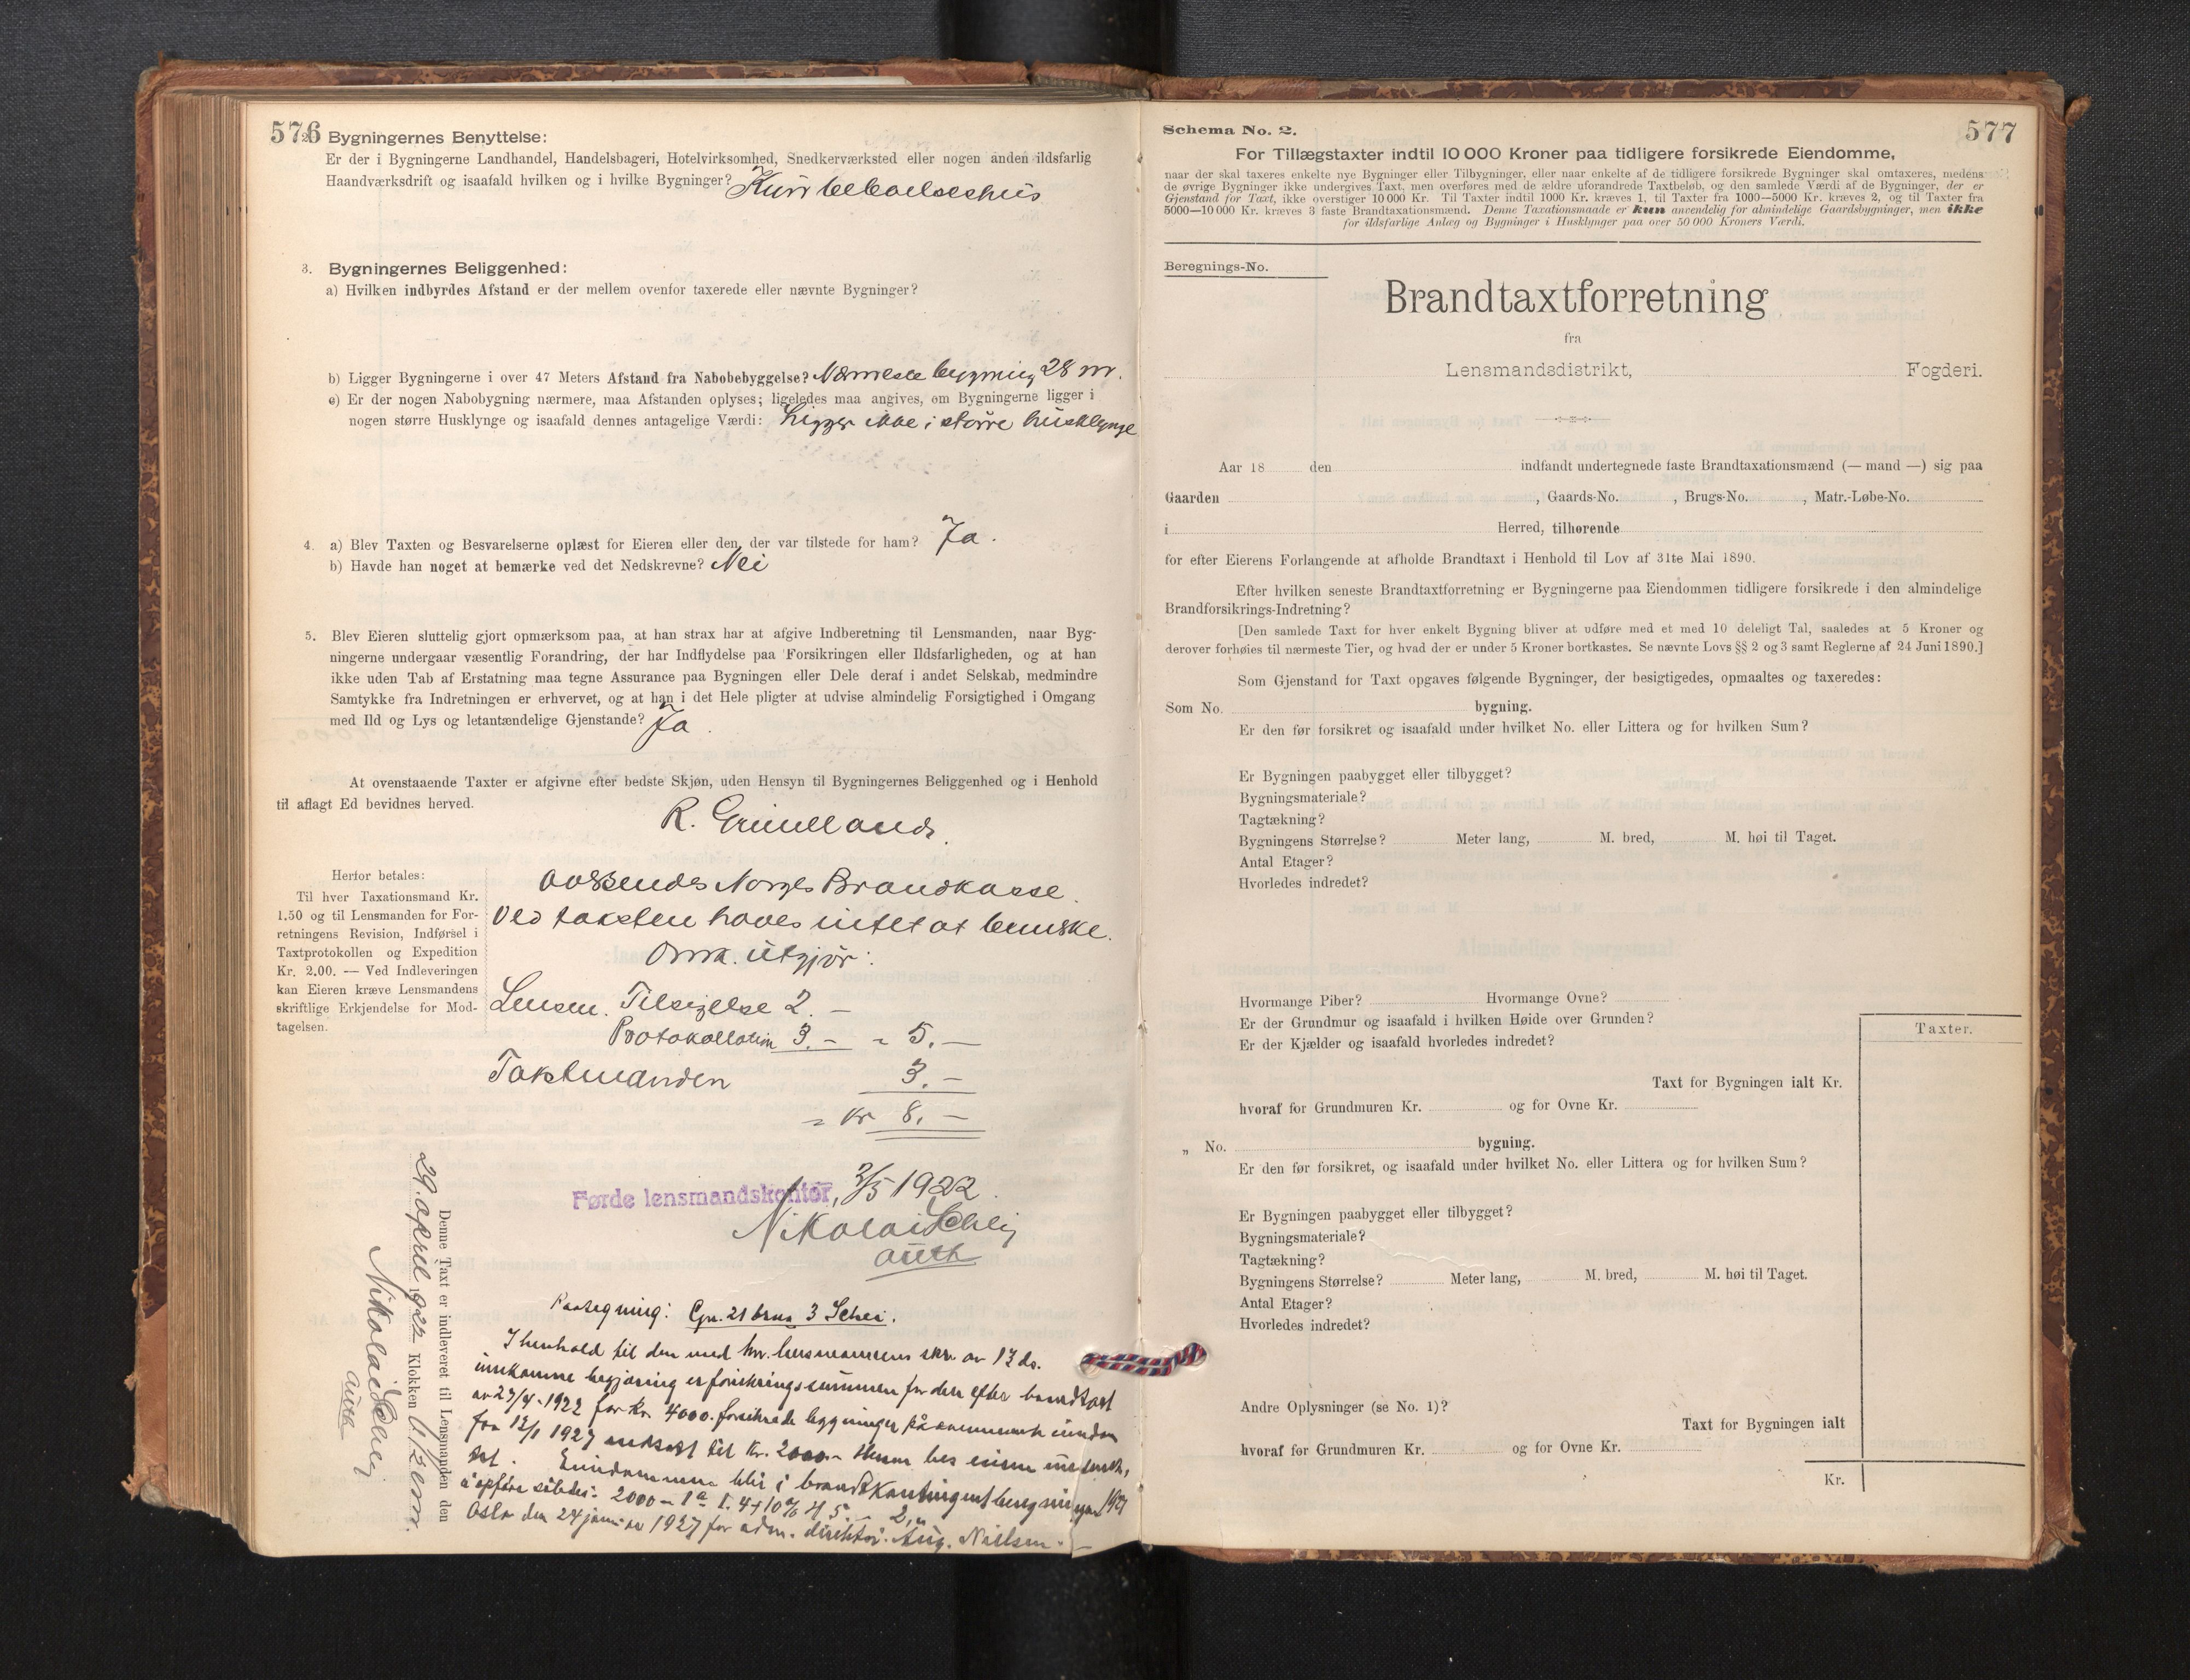 576
2. Bygningernes Benyttelse:
Er der i Bygningerne Landhandel, Handelsbageri, Hotelvirksomhed, Snedkerværksted eller nogen anden ildsfarlig
Haandværksdrift og isaafald hvilken og i hvilke Bygninger? Kun beboelseshus
3. Bygningernes Beliggenhed:
a) Hvilken indbyrdes Afstand er der mellem ovenfor taxerede eller nævnte Bygninger?
b) Ligger Bygningerne i over 47 Meters Afstand fra Nabobebyggelse? Nærmeste bygning 28 m.
c) Er der nogen Nabobygning nærmere, maa Afstanden oplyses; ligeledes maa angives, om Bygningerne ligger i
nogen større Husklynge og isaafald dennes antagelige Værdi: Ligger ikke i større husklynge
4. a) Blev Taxten og Besvarelserne oplæst for Eieren eller den, der var tilstede for ham? Ja.
b) Havde han noget at bemærke ved det Nedskrevne? Nei
5. Blev Eieren sluttelig gjort opmærksom paa, at han strax har at afgive Indberetning til Lensmanden, naar Byg-
ningerne undergaar væsentlig Forandring, der har Indflydelse paa Forsikringen eller Ildsfarligheden, og at han
ikke uden Tab af Erstatning maa tegne Assurance paa Bygningen eller Dele deraf i andet Selskab, medmindre
Samtykke fra Indretningen er erhvervet, og at han i det Hele pligter at udvise almindelig Forsigtighed i Omgang
med Ild og Lys og letantændelige Gjenstande? Ja.
At ovenstaaende Taxter er afgivne efter bedste Skjøn, uden Hensyn til Bygningernes Beliggenhed og i Henhold
til aflagt Ed bevidnes herved.
R. Grimelland.
Herfor betales:
Til hver Taxationsmand Kr.
1.50 og til Lensmanden for For-
retningens Revision, Indførsel i
Taxtprotokollen og Expedition
Kr. 2.00. — Ved Indleveringen
kan Eieren kræve Lensmandens
skriftlige Erkjendelse for Mod-
tagelsen.
Norges Brandkasse.
Ved taksten haves intet at bemerke.
Omk. utgjør:
Lensm. Tilsigelse 2. –
Protokollation 3. – = 5. –
Takstmanden 3. –
= Kr 8. –
Førde lensmandskontor, 2/5 1922.
Nikolai Schei
auth
Denne Taxt er indleveret til Lensmanden den
29. april 1922 Klokken
Nikolai Schei
auth
Paategning: Gnr. 21 brnr 3 Schei.
I henhold til den med hr. lensmannens skr. av 13 ds.
innkomne begjæring er forsikringssummen for den efter brandtakst
av 27/4-1922 for Kr. 4000. forsikrede bygninger på eiendom
fra 12/1 1927 nedsatt til Kr. 2000.–
Eiendommene blir i brandkontingentberegningen 1927
å opføre således: 2000 – 1a 1.4 + 10%
Oslo den 24 januar 1927 for adm. direktør: Aug. Nielsen.
577
Schema No. 2.
For Tillægstaxter indtil 10 000 Kroner paa tidligere forsikrede Eiendomme,
naar der skal taxeres enkelte nye Bygninger eller Tilbygninger, eller naar enkelte af de tidligere forsikrede Bygninger skal omtaxeres, medens
de øvrige Bygninger ikke undergives Taxt, men overføres med de ældre uforandrede Taxtbeløb, og den samlede Værdi af de Bygninger, der er
Gjenstand for Taxt, ikke overstiger 10 000 Kr. Til Taxter indtil 1000 Kr. kræves 1, til Taxter fra 1000—5000 Kr. kræves 2, og til Taxter fra
5000—10 000 Kr. kræves 3 faste Brandtaxationsmænd. Denne Taxationsmaade er kun anvendelig for almindelige Gaardsbygninger, men ikke
for ildsfarlige Anlæg og Bygninger i Husklynger paa over 50 000 Kroners Værdi.
Beregnings-No.
Brandtaxtforretning
fra
Lensmandsdistrikt, Fogderi.
Aar 18 den indfandt undertegnede faste Brandtaxationsmænd (— mand —) sig paa
Gaarden , Gaards-No. , Brugs-No. , Matr.-Løbe-No.
i Herred, tilhørende
for efter Eierens Forlangende at afholde Brandtaxt i Henhold til Lov af 31te Mai 1890.
Efter hvilken seneste Brandtaxtforretning er Bygningerne paa Eiendommen tidligere forsikrede i den almindelige
Brandforsikrings-Indretning?
[Den samlede Taxt for hver enkelt Bygning bliver at udføre med et med 10 deleligt Tal, saaledes at 5 Kroner og
derover forhøies til nærmeste Tier, og hvad der er under 5 Kroner bortkastes. Se nævnte Lovs §§ 2 og 3 samt Reglerne af 24 Juni 1890.]
Som Gjenstand for Taxt opgaves følgende Bygninger, der besigtigedes, opmaaltes og taxeredes:
Som No. bygning.
Er den før forsikret og isaafald under hvilket No. eller Littera og for hvilken Sum?
Er Bygningen paabygget eller tilbygget?
Bygningsmateriale?
Tagtækning?
Bygningens Størrelse? Meter lang, M. bred, M. høi til Taget.
Antal Etager?
Hvorledes indredet?
Hvormange Piber? Hvormange Ovne?
Er der Grundmur og isaafald i hvilken Høide over Grunden?
Er der Kjælder og isaafald hvorledes indredet?
Taxter.
Taxt for Bygningen ialt Kr.
hvoraf for Grundmuren Kr. og for Ovne Kr.
„ No. bygning.
Er den før forsikret, og isaafald under hvilket No. eller Littera og for hvilken Sum?
Er Bygningen paabygget eller tilbygget?
Bygningsmateriale?
Tagtækning?
Bygningens Størrelse? Meter lang, M. bred, M. høi til Taget.
Antal Etager?
Hvorledes indredet?
Andre Oplysninger (se No. 1)?
Taxt for Bygningen ialt
hvoraf for Grundmuren Kr. og for Ovne Kr.
Kr.